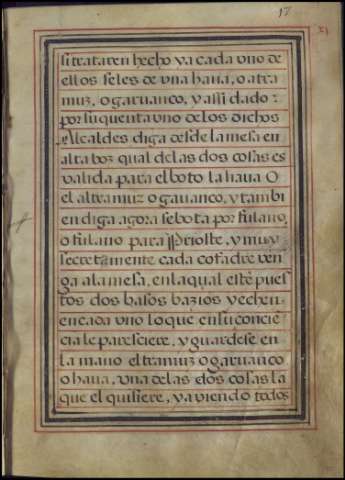 17
si trataren hecho ya cada vno de
ellos se les de vna haua, o atra
muz, o garuanço, y assi dado :
por su quenta vno de los dichos
Alcaldes diga desde la mesa en
alta boz qual de las dos cosas es
valida para el boto la haua O
el altramuz o gauanço, y tambi
en diga agora se bota por fulano,
o fulano para Prioste, y muy
secretamente cada cofadre ven
ga a la mesa, en la qual estè pues
tos dos basos bazios y echen
en cada vno lo què en su concie
cia le paresciere, y guardese en
la mano el tramuz o garuanço
o haua, vna de las dos cosas la
que el quisiere, ya viendo todos